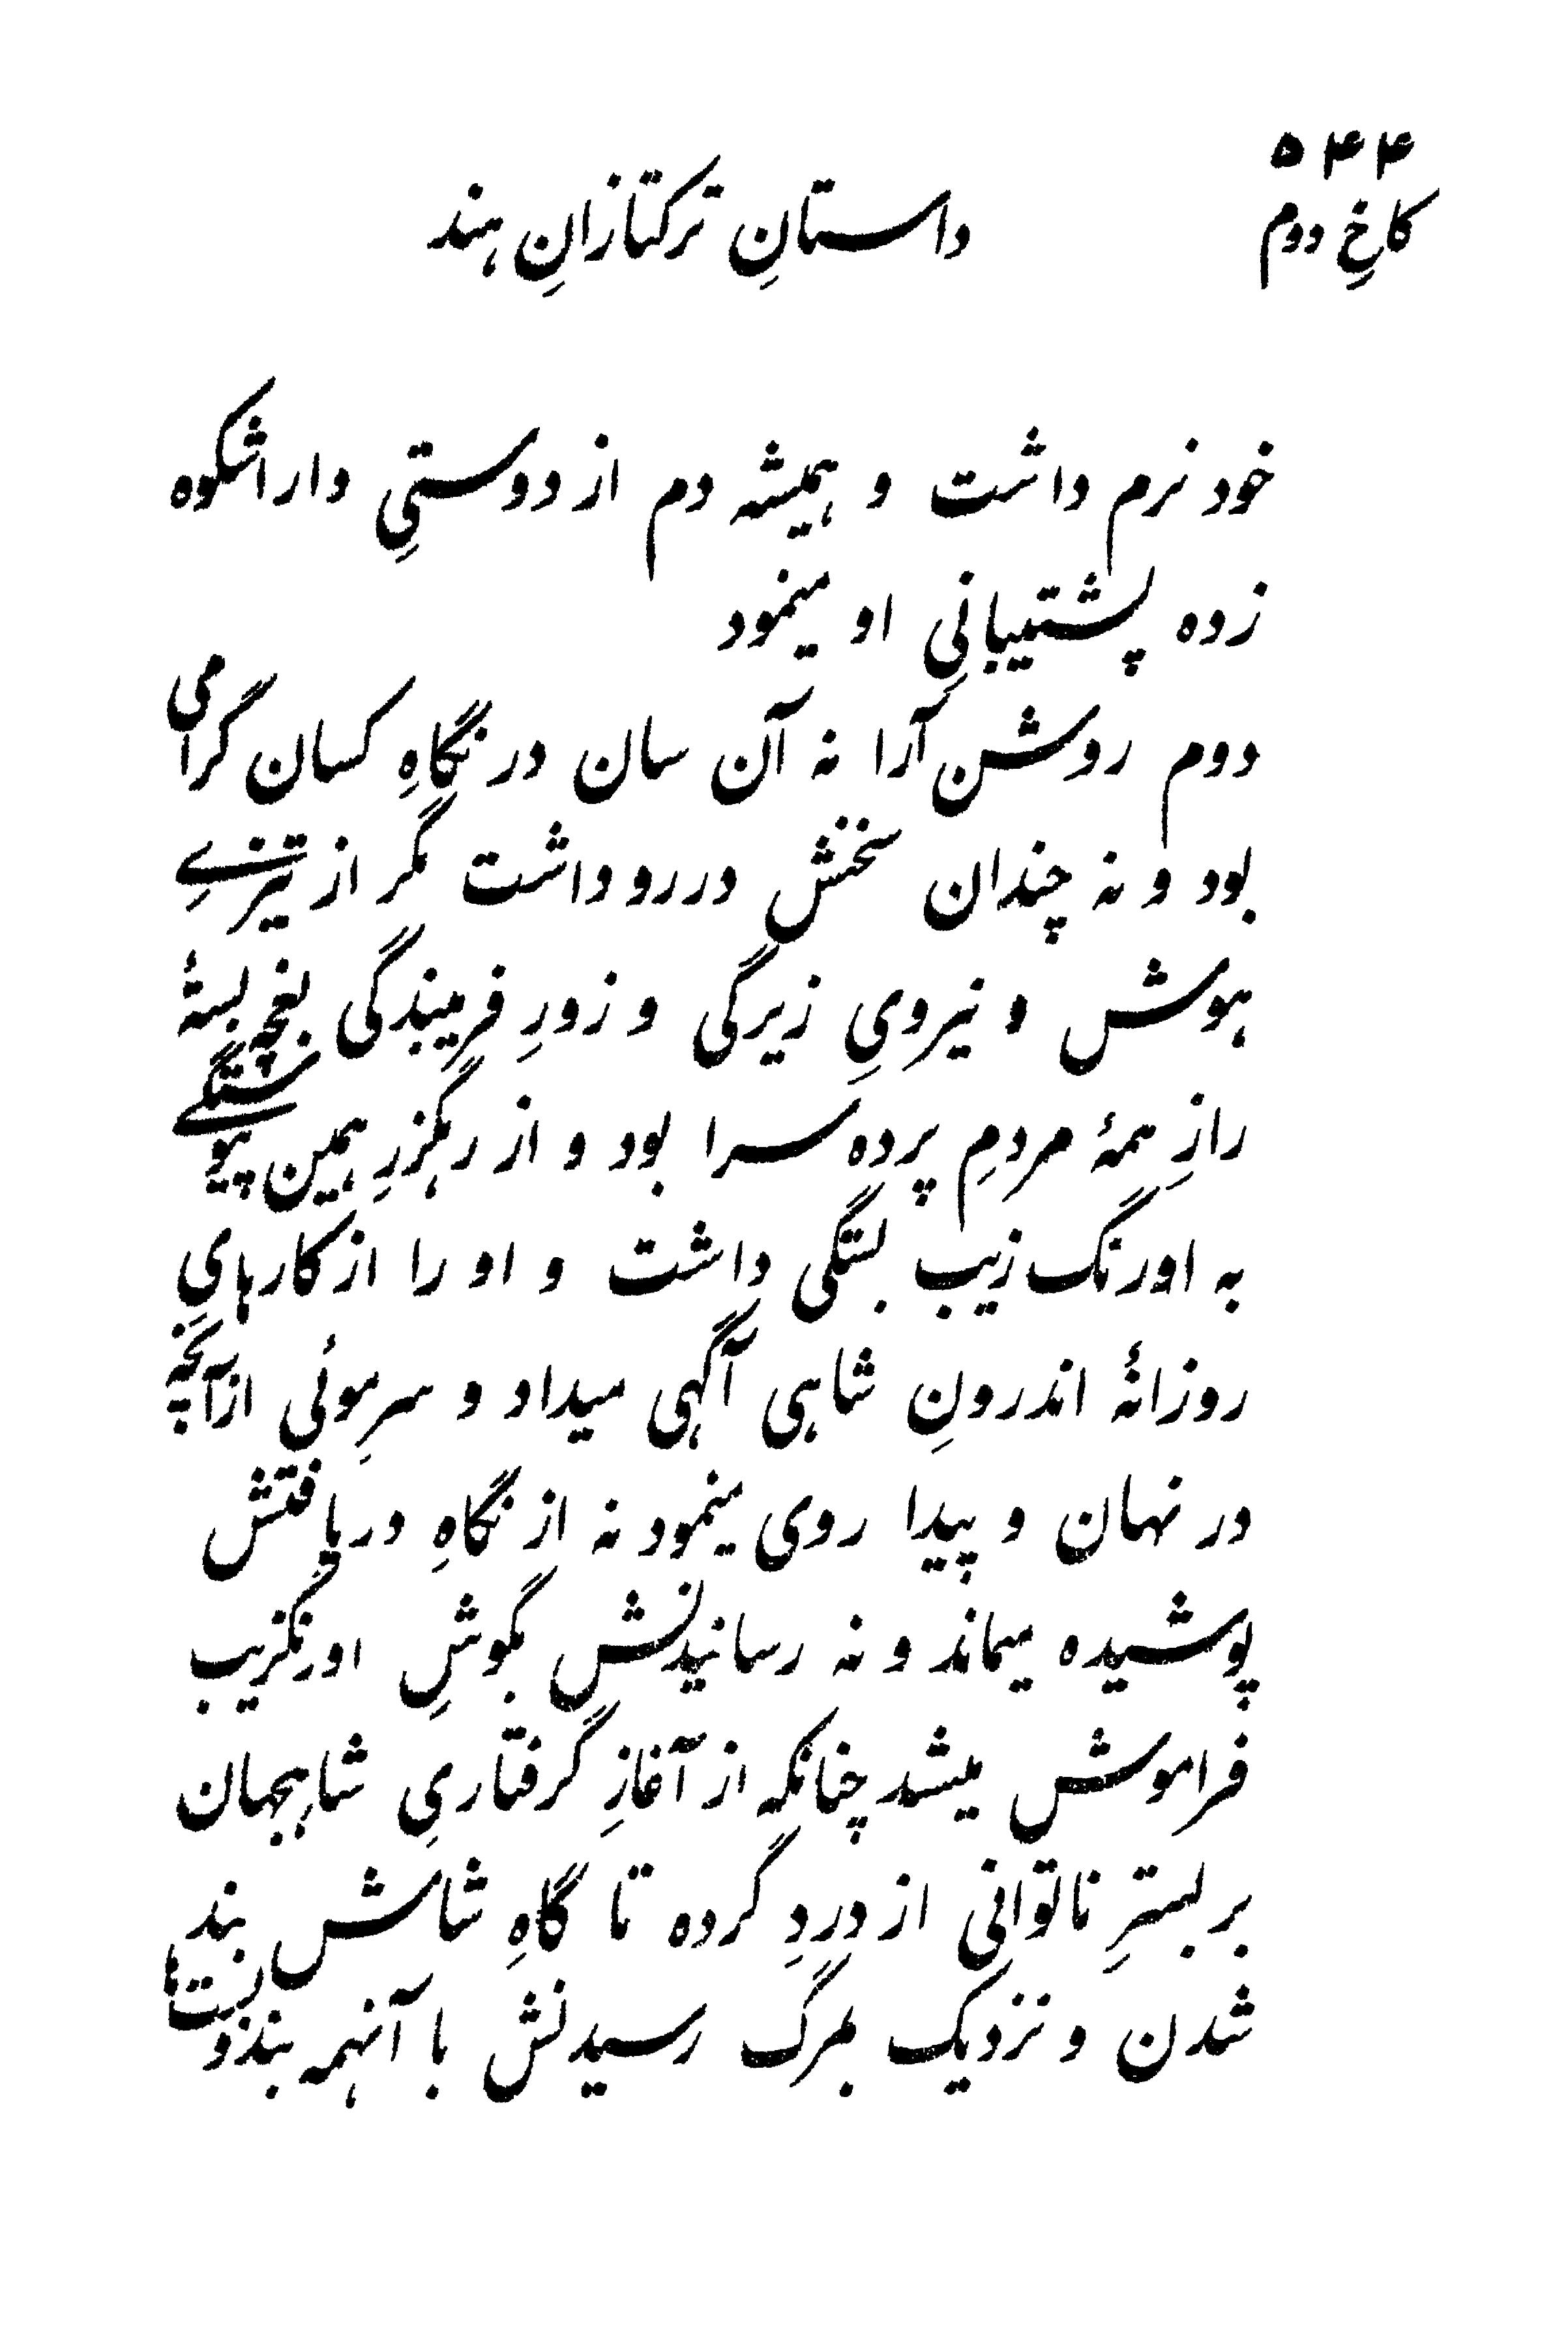 ۵۴۴
کاخِ دوم
داستانِ ترکتازانِ هند
خود نرم داشت و همیشه دم از دوستیِ داراشکوه
زده پشتیبانیِ او مینمود
دوم روشن آرا نه آن سان در نگاهِ کسان گرامی
بود و نه چندان سخنش در رو داشت مگر از تیزیِ
هوش و نیرویِ زیرگی و زورِ فریبندگی بغچه بستهٔ
رازِ همهٔ مردمِ پرده سرا بود و از رهگزرِ همین پیوستگی
به اورنگ زیب بستگی داشت و او را از کارهایِ
روزانهٔ اندرونِ شاهی آگهی میداد و سرِ موئی ازآنچه
در نهان و پیدا روی مینمود نه از نگاهِ دریافتش
پوشیده میماند و نه رسانیدنش بگوشِ اورنگزیب
فراموش میشد چنانکه از آغازِ گرفتاریِ شاهجهان
بر بسترِ ناتوانی از دردِ گرده تا گاهِ شاش بند
شدن و نزدیک بمرگ رسیدنش با آنهمه بندوبستها